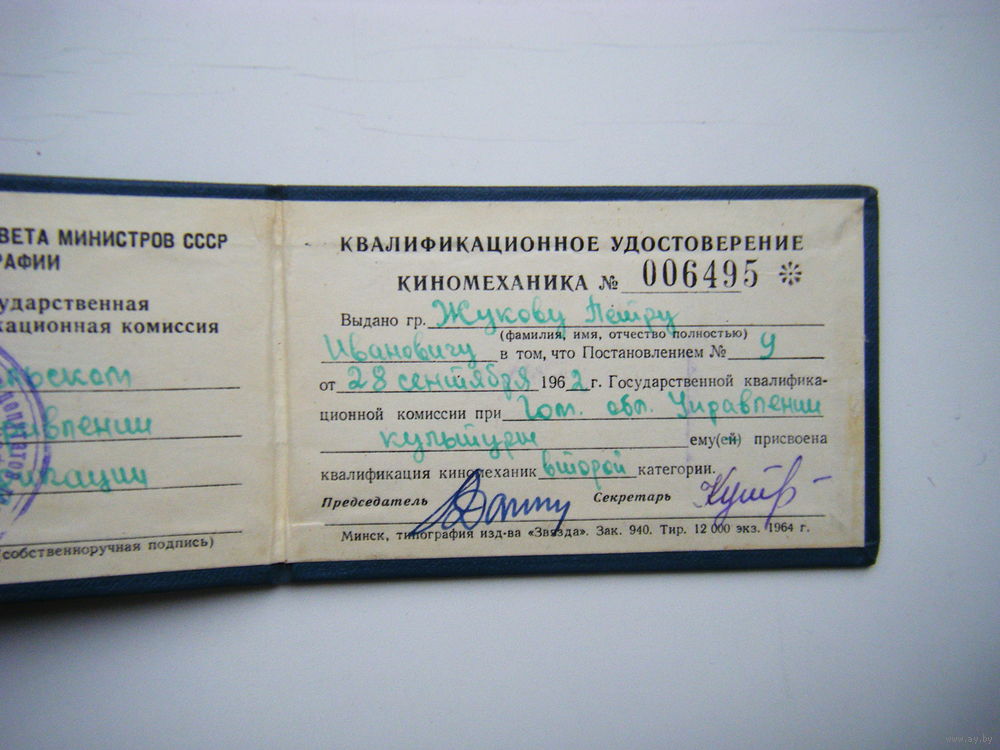 ВЕТА МИНИСТРОВ СССР
РАФИИ
ударственная
кационная комиссия
(собственноручная подпись)
КВАЛИФИКАЦИОННОЕ УДОСТОВЕРЕНИЕ
КИНОМЕХАНИКА № 006495
Выдано гр. Жукову Петру
(фамилия, имя, отчество полностью)
Ивановичу в том, что Постановлением № 9
от 28 сентября 1962 г. Государственной квалифика-
ционной комиссии при Гом. обл. Управлении
культуры ему(ей) присвоена
квалификация киномеханик второй категории.
Председатель Секретарь
Минск, типография изд-ва «Звязда». Зак. 940. Тир. 12 000 экз. 1964 г.
www.ay.by